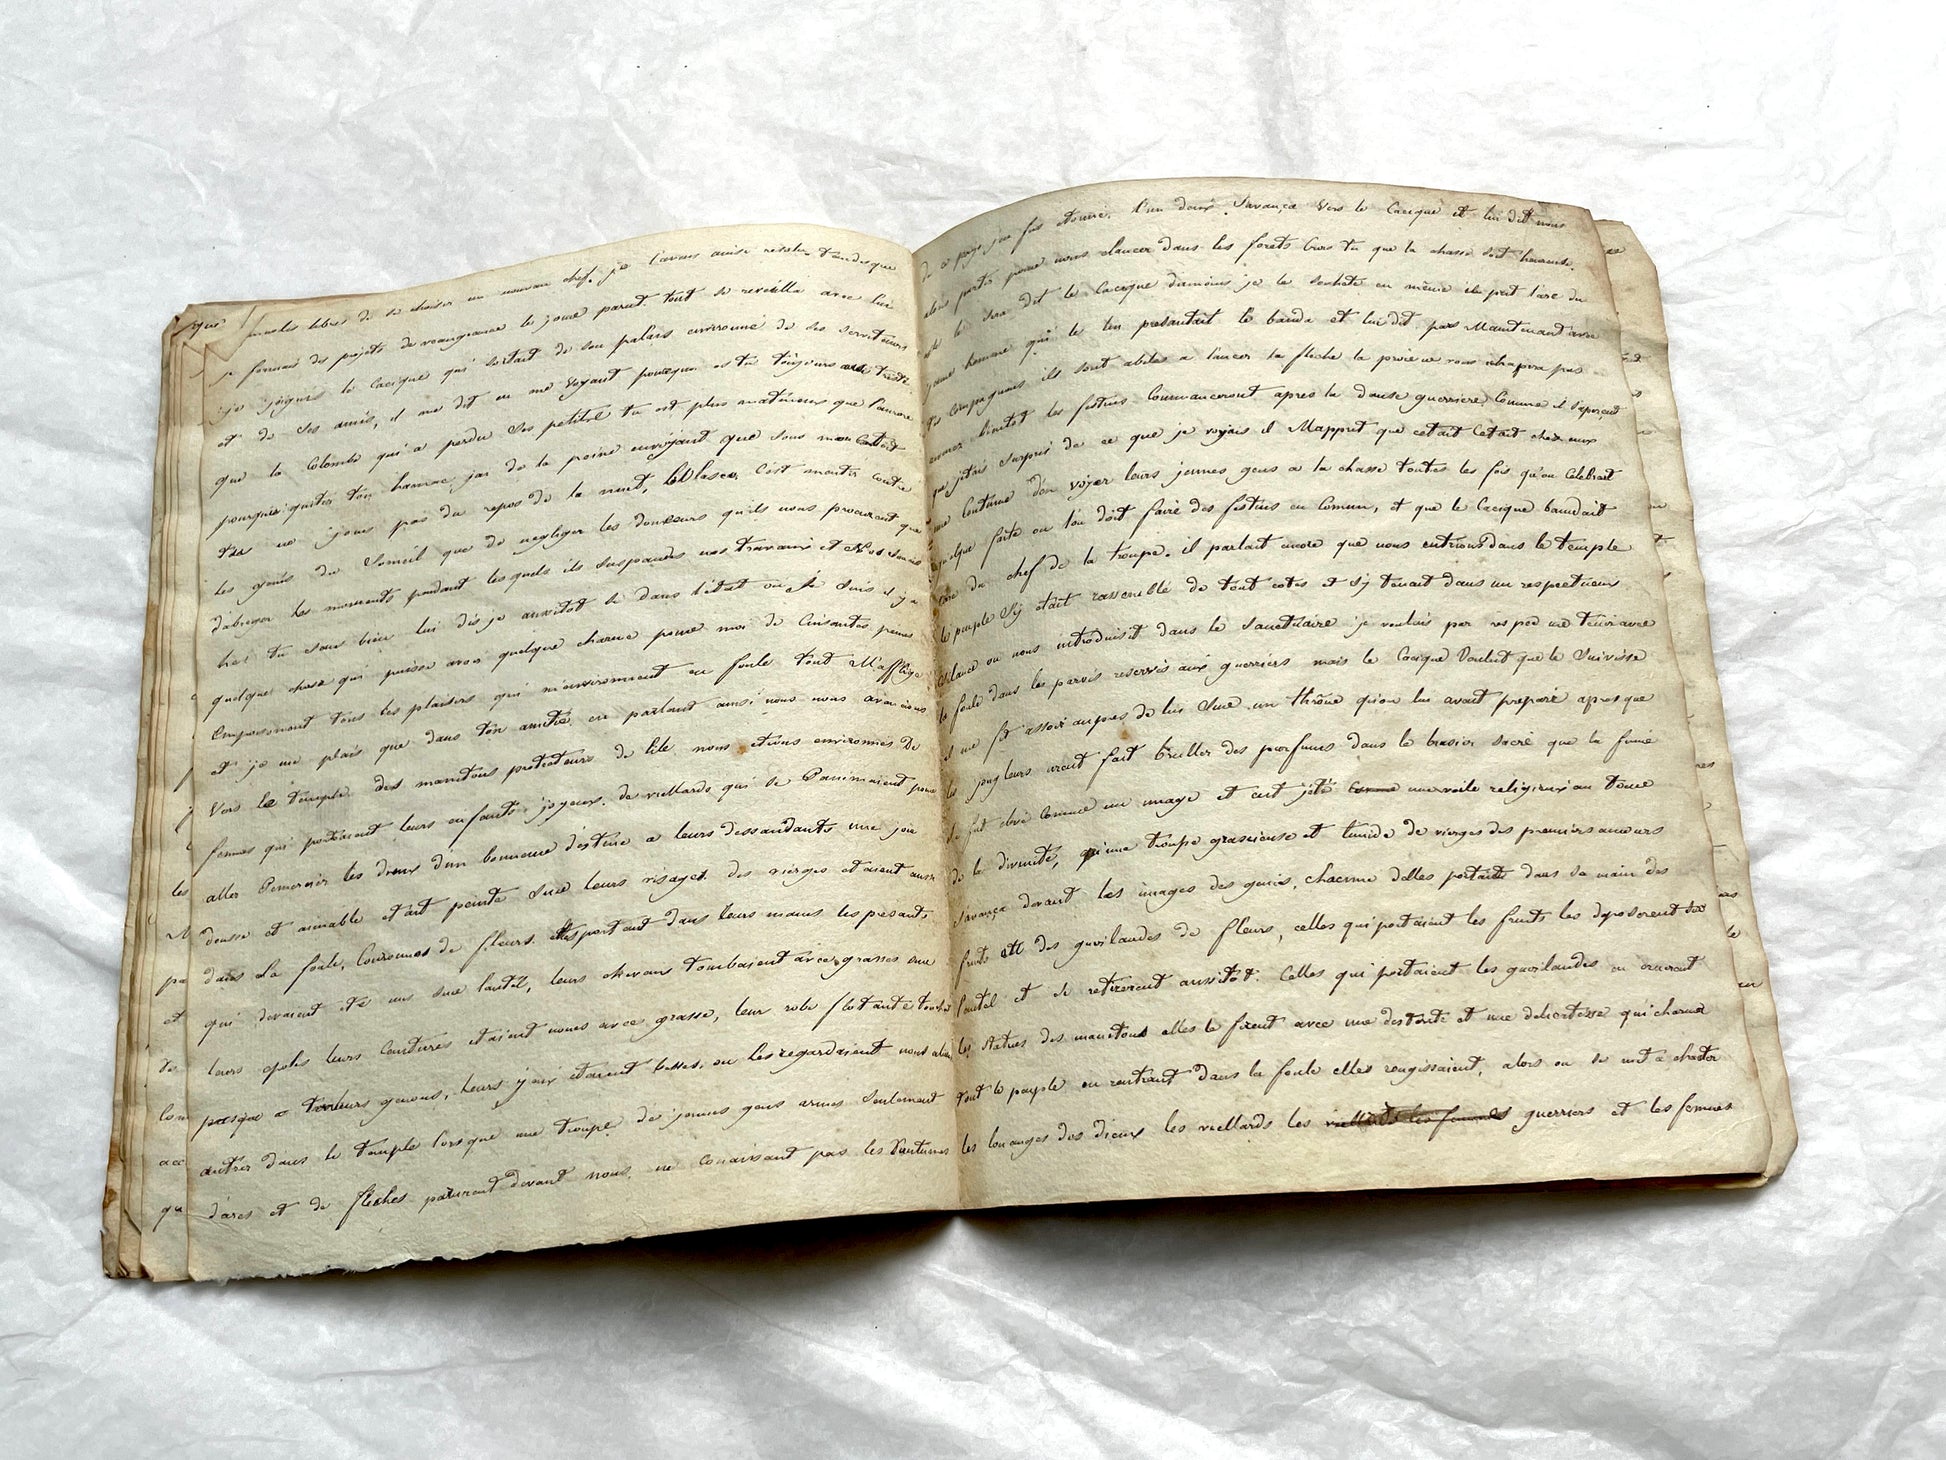 insulos libres de se choisir un nouveau chef. je l'avais ainsi resolu tandis que
je formais des projets de veangeance le jour parut tout se reveilla avec lui
je joignis le Cacique qui sortait de son palais environné de ses serviteurs
et de ses amis, il me dit en me voyant pourquoi es tu toujours aussi triste
que la Colombe qui a perdu ses petits tu est plus matineux que l'aurore
pourquoi quitter ton hamac jai de la peine envoyant que sous mon
tu ne jouis pas du repos de la nuit, C'est mentir contre
les genies du Someil que de negliger les douceurs qu'ils nous procurent que
d'abreger les moments pendant lesquels ils suspendent nos travaux et nos
tu sous bien lui dis je aussitot que dans l'état ou je suis il y a
quelque chose qui puisse avoir quelque charme pour moi de Cuisantes peines
Empoisonnent tous les plaisirs qui m'environnent en foule tout m'afflige
et je ne plais que dans ton amitié, en parlant ainsi nous nous avancions
Vers le temple des manitous protecteurs de l'ile nous etions environnés De
femmes qui portaient leurs enfants joyeux, de viellards qui se Ranimaient pour
aller Remercier les dieux d'un bonneur destiné a leurs dessandants une joie
dousse et aimable etait peinte sur leurs visages. des vierges etaient aussi
dans la foule, Couronnes de fleurs. elles portant dans leurs mains les présants
qui devaient eté mis sur l'autel, leurs cheveux tombaient avec grasse sur
leurs epoles leurs Cintures etaient noues avec grasse, leur robe flotante
presque a leurs genous, leurs yeux etaient baissés, on les regardaient nous
entrer dans le temple lorsque une troupe de jeunes gens armes seulement
d'arcs et de flèches parurent devant nous, ne conaissant pas les Coutumes
de ce pays je fus etonné. l'un deux s'avança Vers le Cacique et lui dit nous
alons partir pour nous elancer dans les forets Crois tu que la chasse soit heureuse.
elle le sera dit le Cacique dumoins je le souhete en même il prit l'arc du
jeune homme qui le lui présentait le banda et lui dit pars Maintenant avec
tes Compagnons ils sont abiles a lancer la fleche la proie ne vous echapera pas
bientot les festins Commanceront apres la danse guerriere. Comme il s'aperçut
que j'etais surpris de ce que je voyais il M'apprit que c'etait chez eux
une Coutume d'en voyer leurs jeunes gens a la chasse toutes les fois qu'on Celebrait
quelque faite ou l'on doit faire des festins en Comun, et que le Cacique bandait
l'arc du chef de la troupe. il parlait encore que nous entrions dans le temple
le peuple s'y etait rassemblé de tout cotes et s'y tenait dans un respectueux
silance on nous introduisit dans le sanctuaire je voulais par respec me tenir avec
la foule dans les parvis reservés aux guerriers mais le Cacique Voulut que le suivisse
il me fit assoir aupres de lui sur un thrône qu'on lui avait preparé apres que
les jongleurs urent fait bruller des parfums dans le brasier sacré que la fumé
se fut elevé comme un nuage et eut jeté une voile religieux au tour
de la divinité, qu'une troupe grasieuse et timide de vierges des premiers
s'avança devant les images des genies, chacune delles portait dans sa main des
fruits et des guirlandes de fleurs, celles qui portaient les fruits les deposerent sur
l'autel et se retirerent aussitôt. Celles qui portaient les guirlandes en ornerent
les Statues des manitous elles le firent avec une desterité et une delicatesse qui charma
tout le peuple en rentrant dans la foule elles rougissaient, alors on se mit a chanter
les louanges des dieux les viellards les viellards les femmes guerriers et les femmes